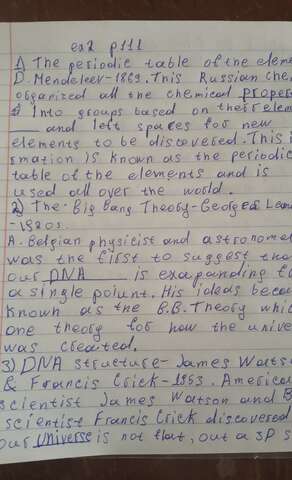 ex2 p111
1) The periodic table of the eleme
D. Mendeleev-1869. This Russian che
organized all the chemical proper
Into groups based on their elem
and left spases for new
elements to be discovered. This i
rmation is known as the periodic
table of the elements and is
used all over the world.
2) The Big Bang Theory- George Lem
-1920s.
A. Belgian physicist and astronome
was the first to suggest tha
our DNA is exapanding f
a single point. His ideas becam
known as the B.B. Theory whic
one theory for how the unive
was created.
3) DNA structure- James Watson
& Francis Crick-1953. America
scientist James Watson and B
scientist Francis Crick discovered
our Universe is not flat, out a 3P s